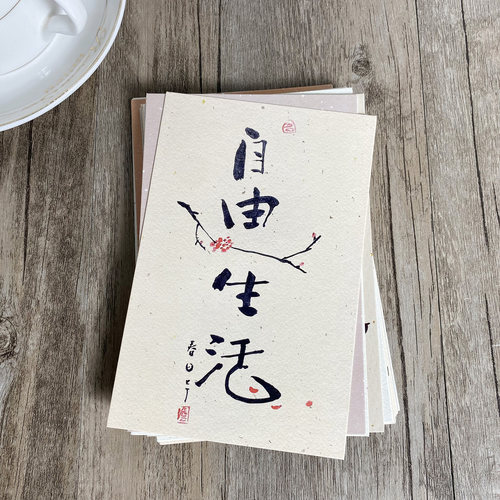 自由生活
春日